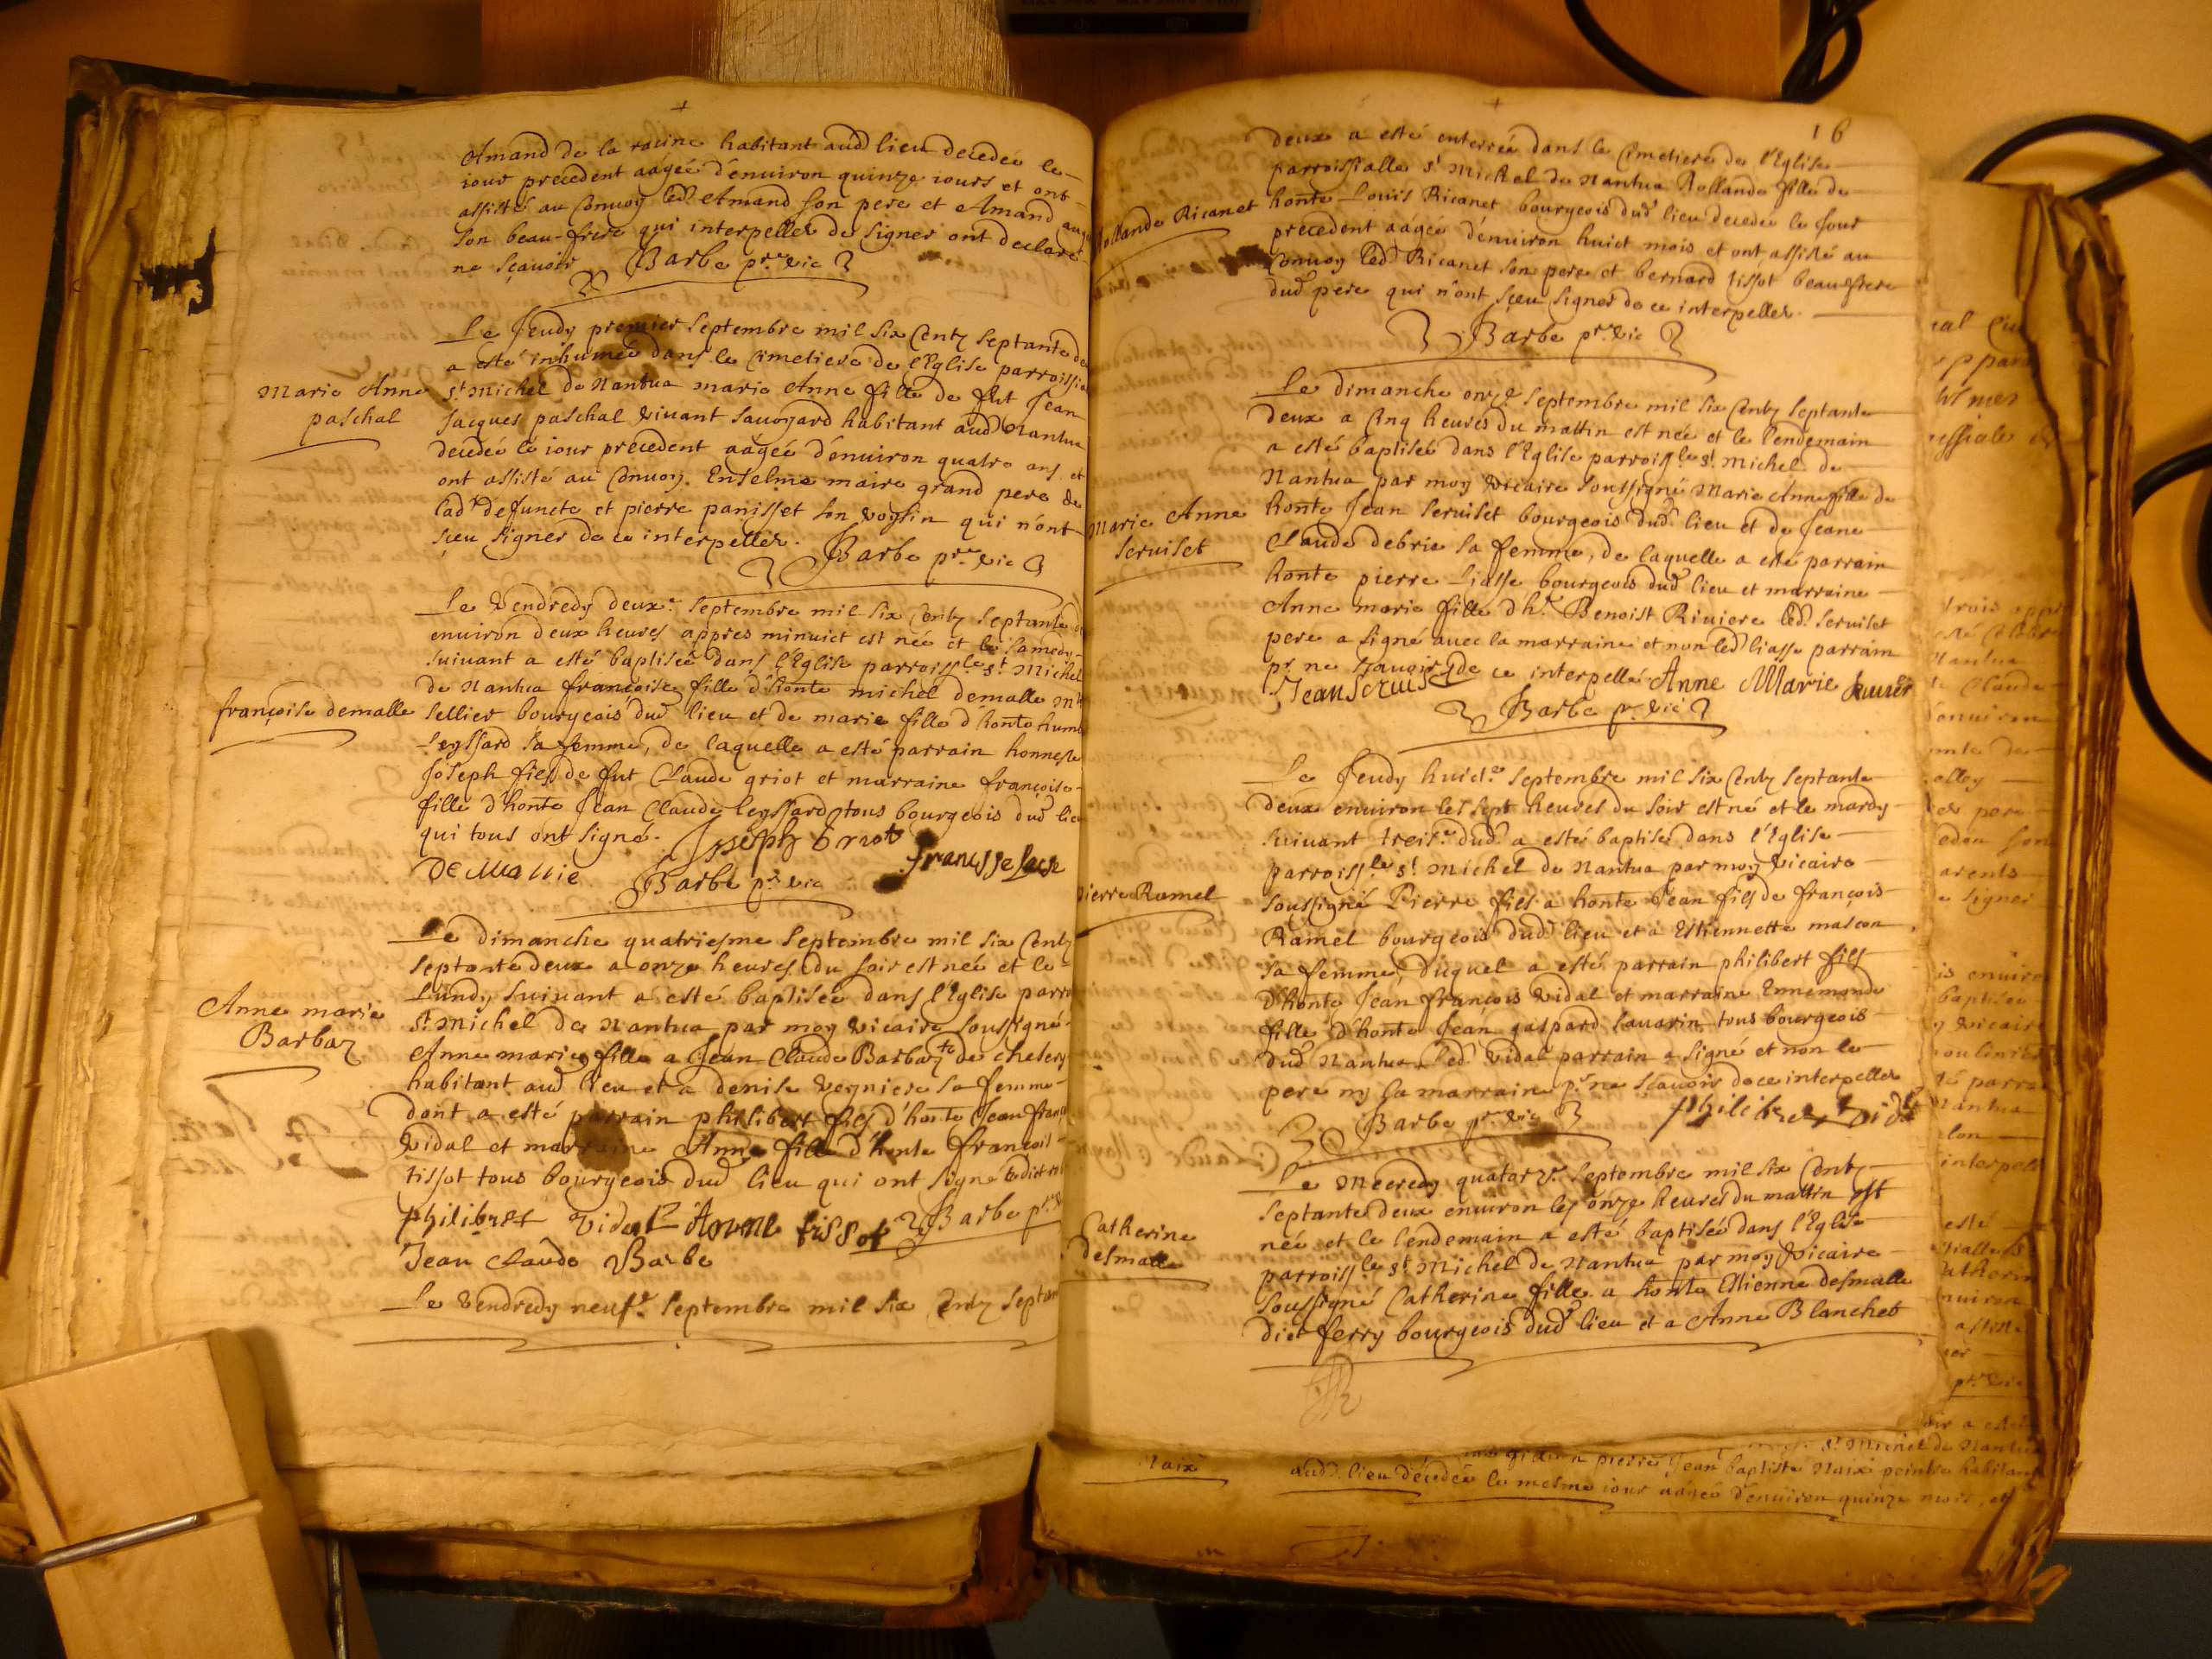 Amand de la racine habitant aud lieu decedée le
iour precedent aagée d'enuiron quinze iours et ont
assisté au Conuoy led Amand son pere et Amand
son beau-frere qui interpellez de signer ont declaré
ne sçauoir Barbe pre vic
Le Jeudy premier septembre mil six Centz septante
a esté inhumée dans le Cimetiere de l'Eglise
Marie Anne
paschal
st Michel de Nantua marie Anne fille de fut Jean
Jacques paschal viuant sauoyard habitant aud Nantua
decedée le iour precedent aagée d'enuiron quatre ans et
ont assisté au Conuoy. Enselme maire grand pere de
lad defuncte et pierre panisset son voysin qui n'ont
sçeu signer de ce interpellez. Barbe pre vic
Le Vendredy deuxe septembre mil six Centz septante
enuiron deux heures appres minuict est née et le samedy
suiuant a esté baptisée dans l'Eglise parroissle st Michel
de Nantua françoise fille d'honte michel demalle
françoise demalle
sellier bourgeois dud lieu et de marie fille d'honte
Leyssard sa femme, de laquelle a esté parrain honneste
Joseph fils de fut Claude griot et marraine françoise
fille d'honte Jean Claude leyssard tous bourgeois dud lieu
qui tous ont signé. Joseph Griot
Barbe pre vic
Le dimanche quatriesme septembre mil six Centz
septante deux a onze heures du soir est née et le
Lundy suiuant a esté baptisée dans l'Eglise
Anne marie
Barbaz
st Michel de Nantua par moy vicaire soussigné
Anne marie fille a Jean Claude Barbaz de
habitant aud lieu et a denise vegniere sa femme
dont a esté parrain philibert fils d'honte Jean
Vidal et marraine Anne fille d'honte françois
tissot tous bourgeois dud lieu qui ont signé
philibert vidal Anne tissot Barbe
Jean Claude Barbe
Le Vendredy neufe septembre mil six Centz
16
deux a esté enterrée dans le Cimetiere de l'Eglise
parroissialle st Michel de Nantua Rollande fille de
Rollande Ricanet
honte Louis Ricanet bourgeois dud lieu decedée le Jour
precedent aagée d'enuiron huict mois et ont assisté au
Conuoy led Ricanet son pere et bernard tissot beaufrere
dud pere qui n'ont sçeu signer de ce interpellez.
Barbe pre vic
Le dimanche onze septembre mil six Centz septante
deux a Cinq heures du mattin est née et le lendemain
a esté baptisée dans l'Eglise parroissle st Michel de
Nantua par moy vicaire soussigné Marie Anne fille de
Marie Anne
seruiset
honte Jean seruiset bourgeois dud lieu et de Jeane
Claude debrie sa femme, de laquelle a esté parrain
honte pierre Liasse bourgeois dud lieu et marraine
Anne marie fille d'ht Benoist Riuiere led seruiset
pere a signé auec la marraine et non led liasse parrain
pr ne sçauoir de ce interpellé Anne Marie
Barbe pr vic
Le Jeudy huicte septembre mil six Centz septante
deux enuiron les sept heures du soir est né et le mardy
suiuant treize dud a esté baptisé dans l'Eglise
parroissle st Michel de Nantua par moy vicaire
Pierre Ramel
soussigné Pierre fils a honte Jean fils de françois
Ramel bourgeois dud lieu et a Estiennette mascon
sa femme, duquel a esté parrain philibert fils
d'honte Jean françois vidal et marraine Ennemonde
fille d'honte Jean gaspard sauarin tous bourgeois
dud Nantua. led vidal parrain a signé et non le
pere ny la marraine pr ne sçauoir de ce interpellez
Barbe pr vic philibert vidal
Le Mecredy quatorze septembre mil six Centz
septante deux enuiron les onze heures du mattin est
née et le lendemain a esté baptisée dans l'Eglise
Catherine
desmalle
parroissle st Michel de Nantua par moy vicaire
soussigné Catherine fille a honte Estienne desmalle
dict ferry bourgeois dud lieu et a Anne Blanchet
pierre Jean baptiste Naix peintre habitant
Naix
aud lieu décedée le mesme iour aagée d'enuiron quinze mois, et